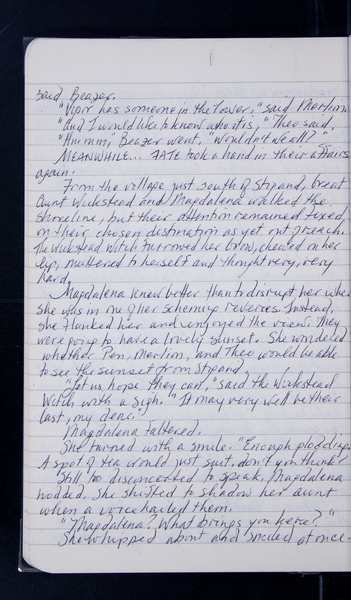 said Beazer.
"Vipir has someone in the tower," said Merlion.
"And I would like to know who it is," Theo said.
"Hmmm, Beazer went, "Wouldn't we all?"
MEANWHILE... FATE took a hand in their affairs
again.
From the village just south of Stipand, Great
Aunt Wickstead and Magdalena walked the
shoreline, but their attention remained fixed
on their chosen destination as yet out of reach.
The Wickstead Witch furrowed her brow, chewed on her
lip, muttered to herself and thought very, very
hard.
Magdalena knew better than to disrupt her when
she was in one of her scheming reveries. Instead,
she flanked her and enjoyed the view. They
were going to have a lovely sunset. She wondered
whether Pen, Merlion, and Theo would be able
to see the sunset from Stipand.
"Let us hope they can," said the Wickstead
Witch with a sigh. "It may very well be their
last, my dear."
Magdalena faltered.
She turned with a smile. "Enough plodding.
A spot of tea would just suit, don't you think?"
Still too disconcerted to speak, Magdalena
nodded. She shifted to shadow her aunt
when a voice hailed them.
"Magdalena? What brings you here?"
She whipped about and smiled at once.